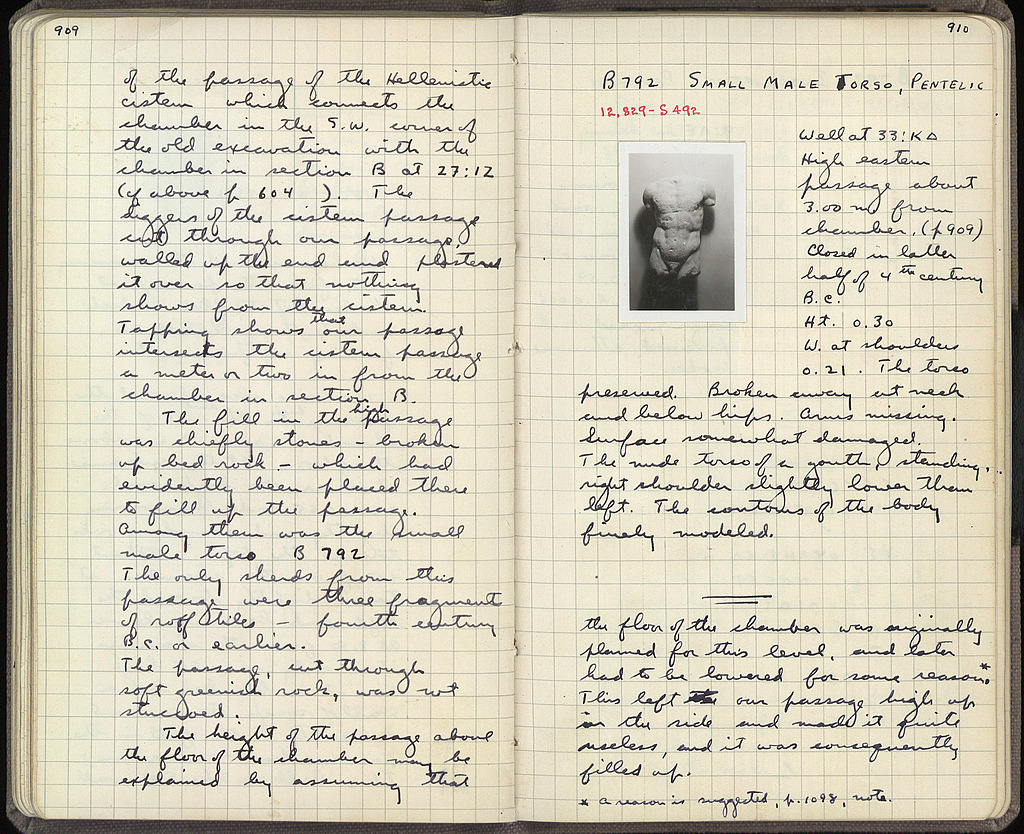 909
of the passage of the Hellenistic
cistern which connects the
chamber in the S.W. corner of
the old excavation with the
chamber in section B at 27:12
(cf above p 604 ). The
diggers of the cistern passage
cut through our passage,
walled up the end and plastered
it over so that nothing
shows from the cistern.
Tapping shows that our passage
intersects the cistern passage
a meter or two in from the
chamber in section B.
The fill in the high passage
was chiefly stones – broken
up bed rock – which had
evidently been placed there
to fill up the passage.
Among them was the small
male torso B 792
The only sherds from this
passage were three fragments
of roof tiles – fourth century
B.C. or earlier.
The passage, cut through
soft greenish rock, was not
stuccoed.
The height of the passage above
the floor of the chamber may be
explained by assuming that
910
B 792 SMALL MALE TORSO, PENTELIC
12,829 - S 492
Well at 33:ΚΔ
High eastern
passage about
3.00 m from
chamber, (p 909)
Closed in latter
half of 4th century
B.C.
Ht. 0.30
W. at shoulders
0.21. The torso
preserved. Broken away at neck
and below hips. Arms missing.
Surface somewhat damaged.
The nude torso of a youth, standing,
right shoulder slightly lower than
left. The contours of the body
finely modeled.
the floor of the chamber was originally
planned for this level, and later
had to be lowered for some reason.*
This left our passage high up
in the side and made it quite
useless, and it was consequently
filled up.
* A reason is suggested, p. 1098, note.